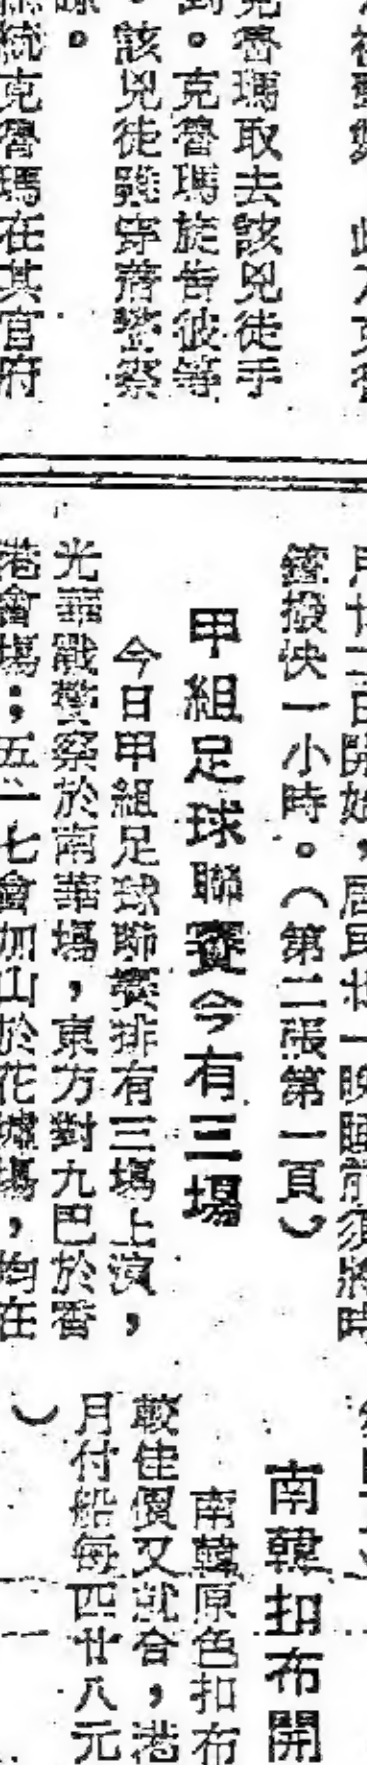 克魯瑪取去該兇徒手
到。克魯瑪旋告彼等
。該兇徒雖穿着警察
總統克魯瑪在其官府
月廿二日開始，居民於一晚睡前須將時
鐘撥快一小時。（第二張第一頁）
甲組足球聯賽今有三場
今日甲組足球聯賽排有三場上演，
光華戰警察於南華場，東方對九巴於香
港會場；五一七會加山於花墟場，均在
南韓扣布開
南韓原色扣布
較佳價又就合，港
月付船每匹廿八元
）